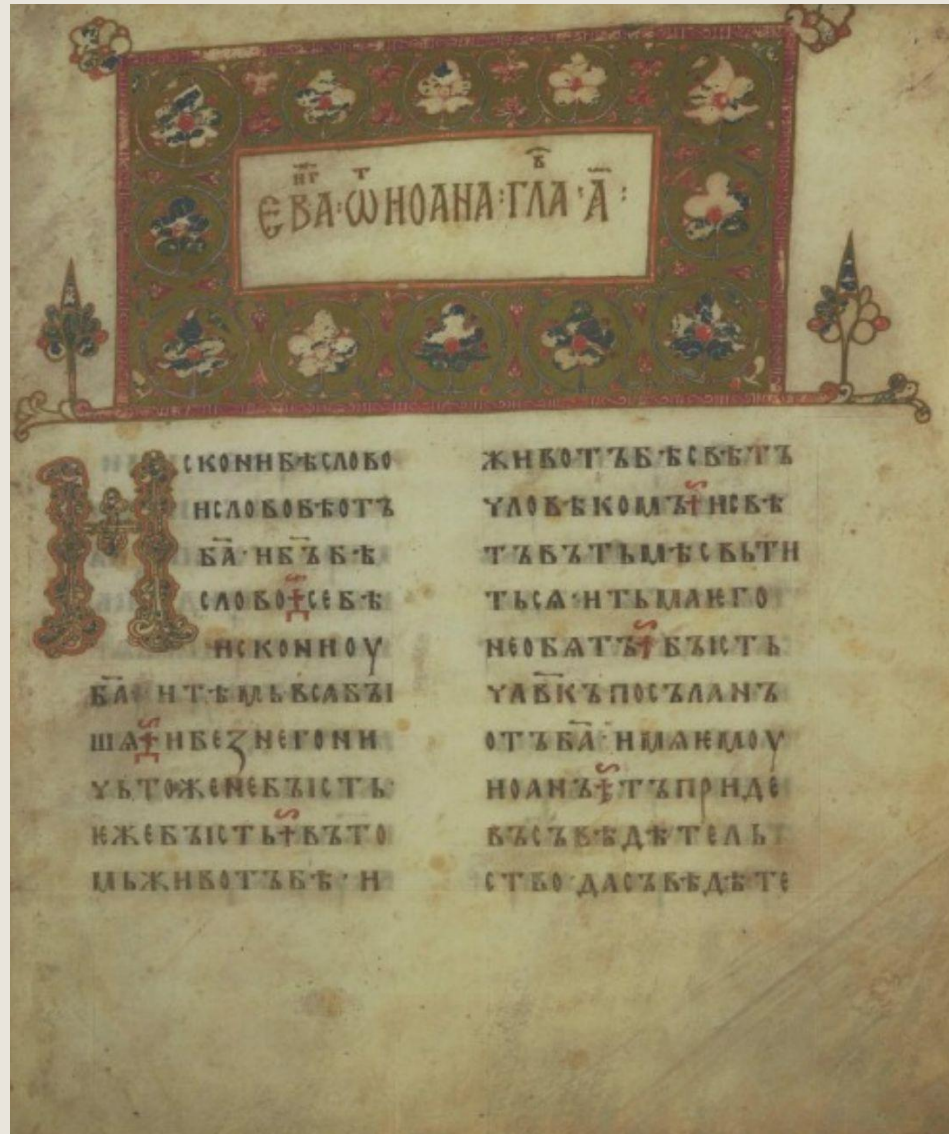 ЄВА҃·Ѡⷮ ИОАНА:ГЛАⷡ·А҃:
ИСКОНИБѢСЛОВО
ИСЛОВОБѢОТЪ
БА҃·ИБЪ҃БѢ
СЛОВО СЕБѢ
ИСКОНИОУ
БА҃·ИТѢМЬВСАБЪІ
ШѦ ИБЕЗНЕГОНИ
ЧЬТОЖЕНЕБЪІСТЬ·
ѤЖЕБЪІСТЬ ВЪТО
МЬЖИВОТЪБѢ·И
ЖИВОТЪБѢСВѢТЪ
ЧЛОВѢКОМЪ ИСВѢ
ТЪВЪТЬМѢСВЬТИ
ТЬСѦ·ИТЬМАѤГО
НЕОБѦТЪ БЪІСТЬ
ЧЛВ҃КЪПОСЪЛАНЪ
ОТЪБА҃·ИМѦѤМОУ
ИОАНЪ ТЪПРИДЕ
ВЪСЪВѢДѢТЕЛЬ
СТВО·ДАСЪВѢДѢТЕ